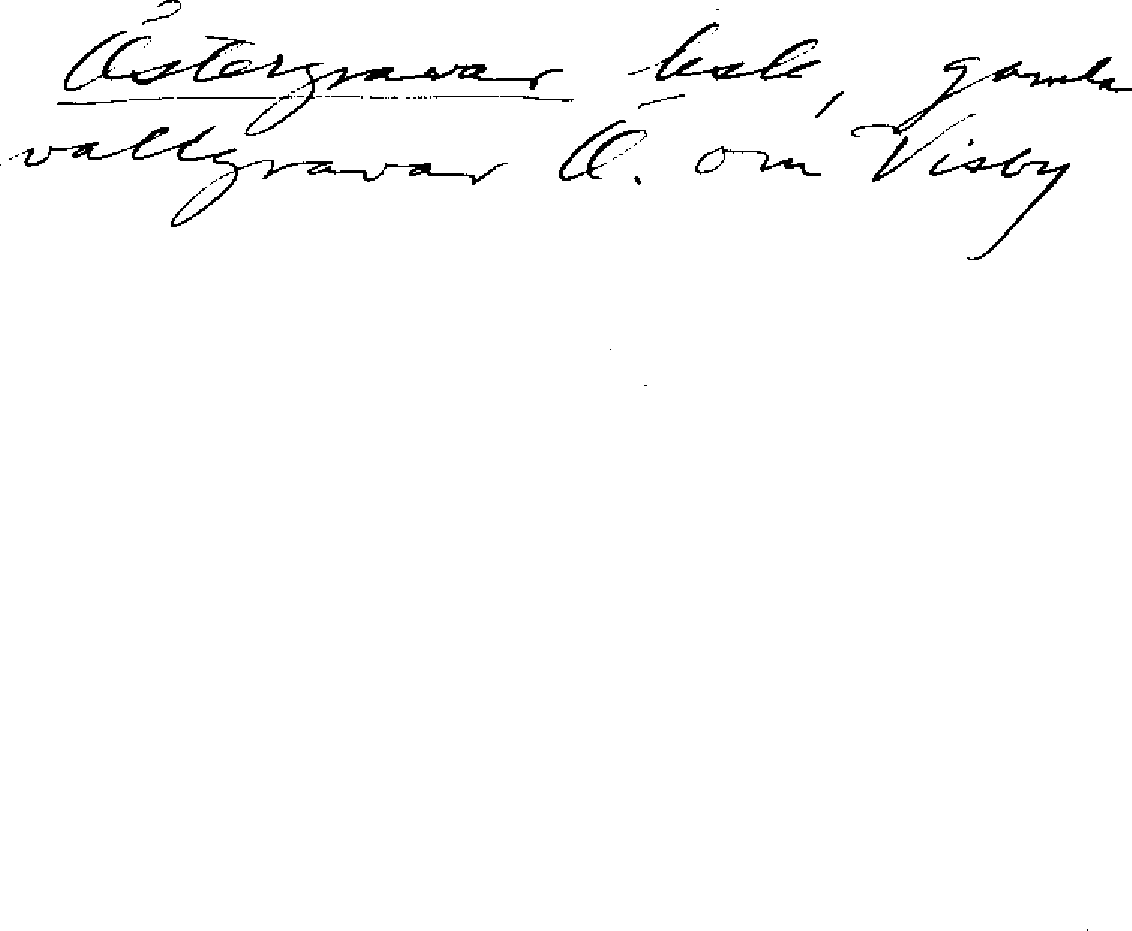 Östergravar bsk, gamla
vallgravar Ö. om Visby